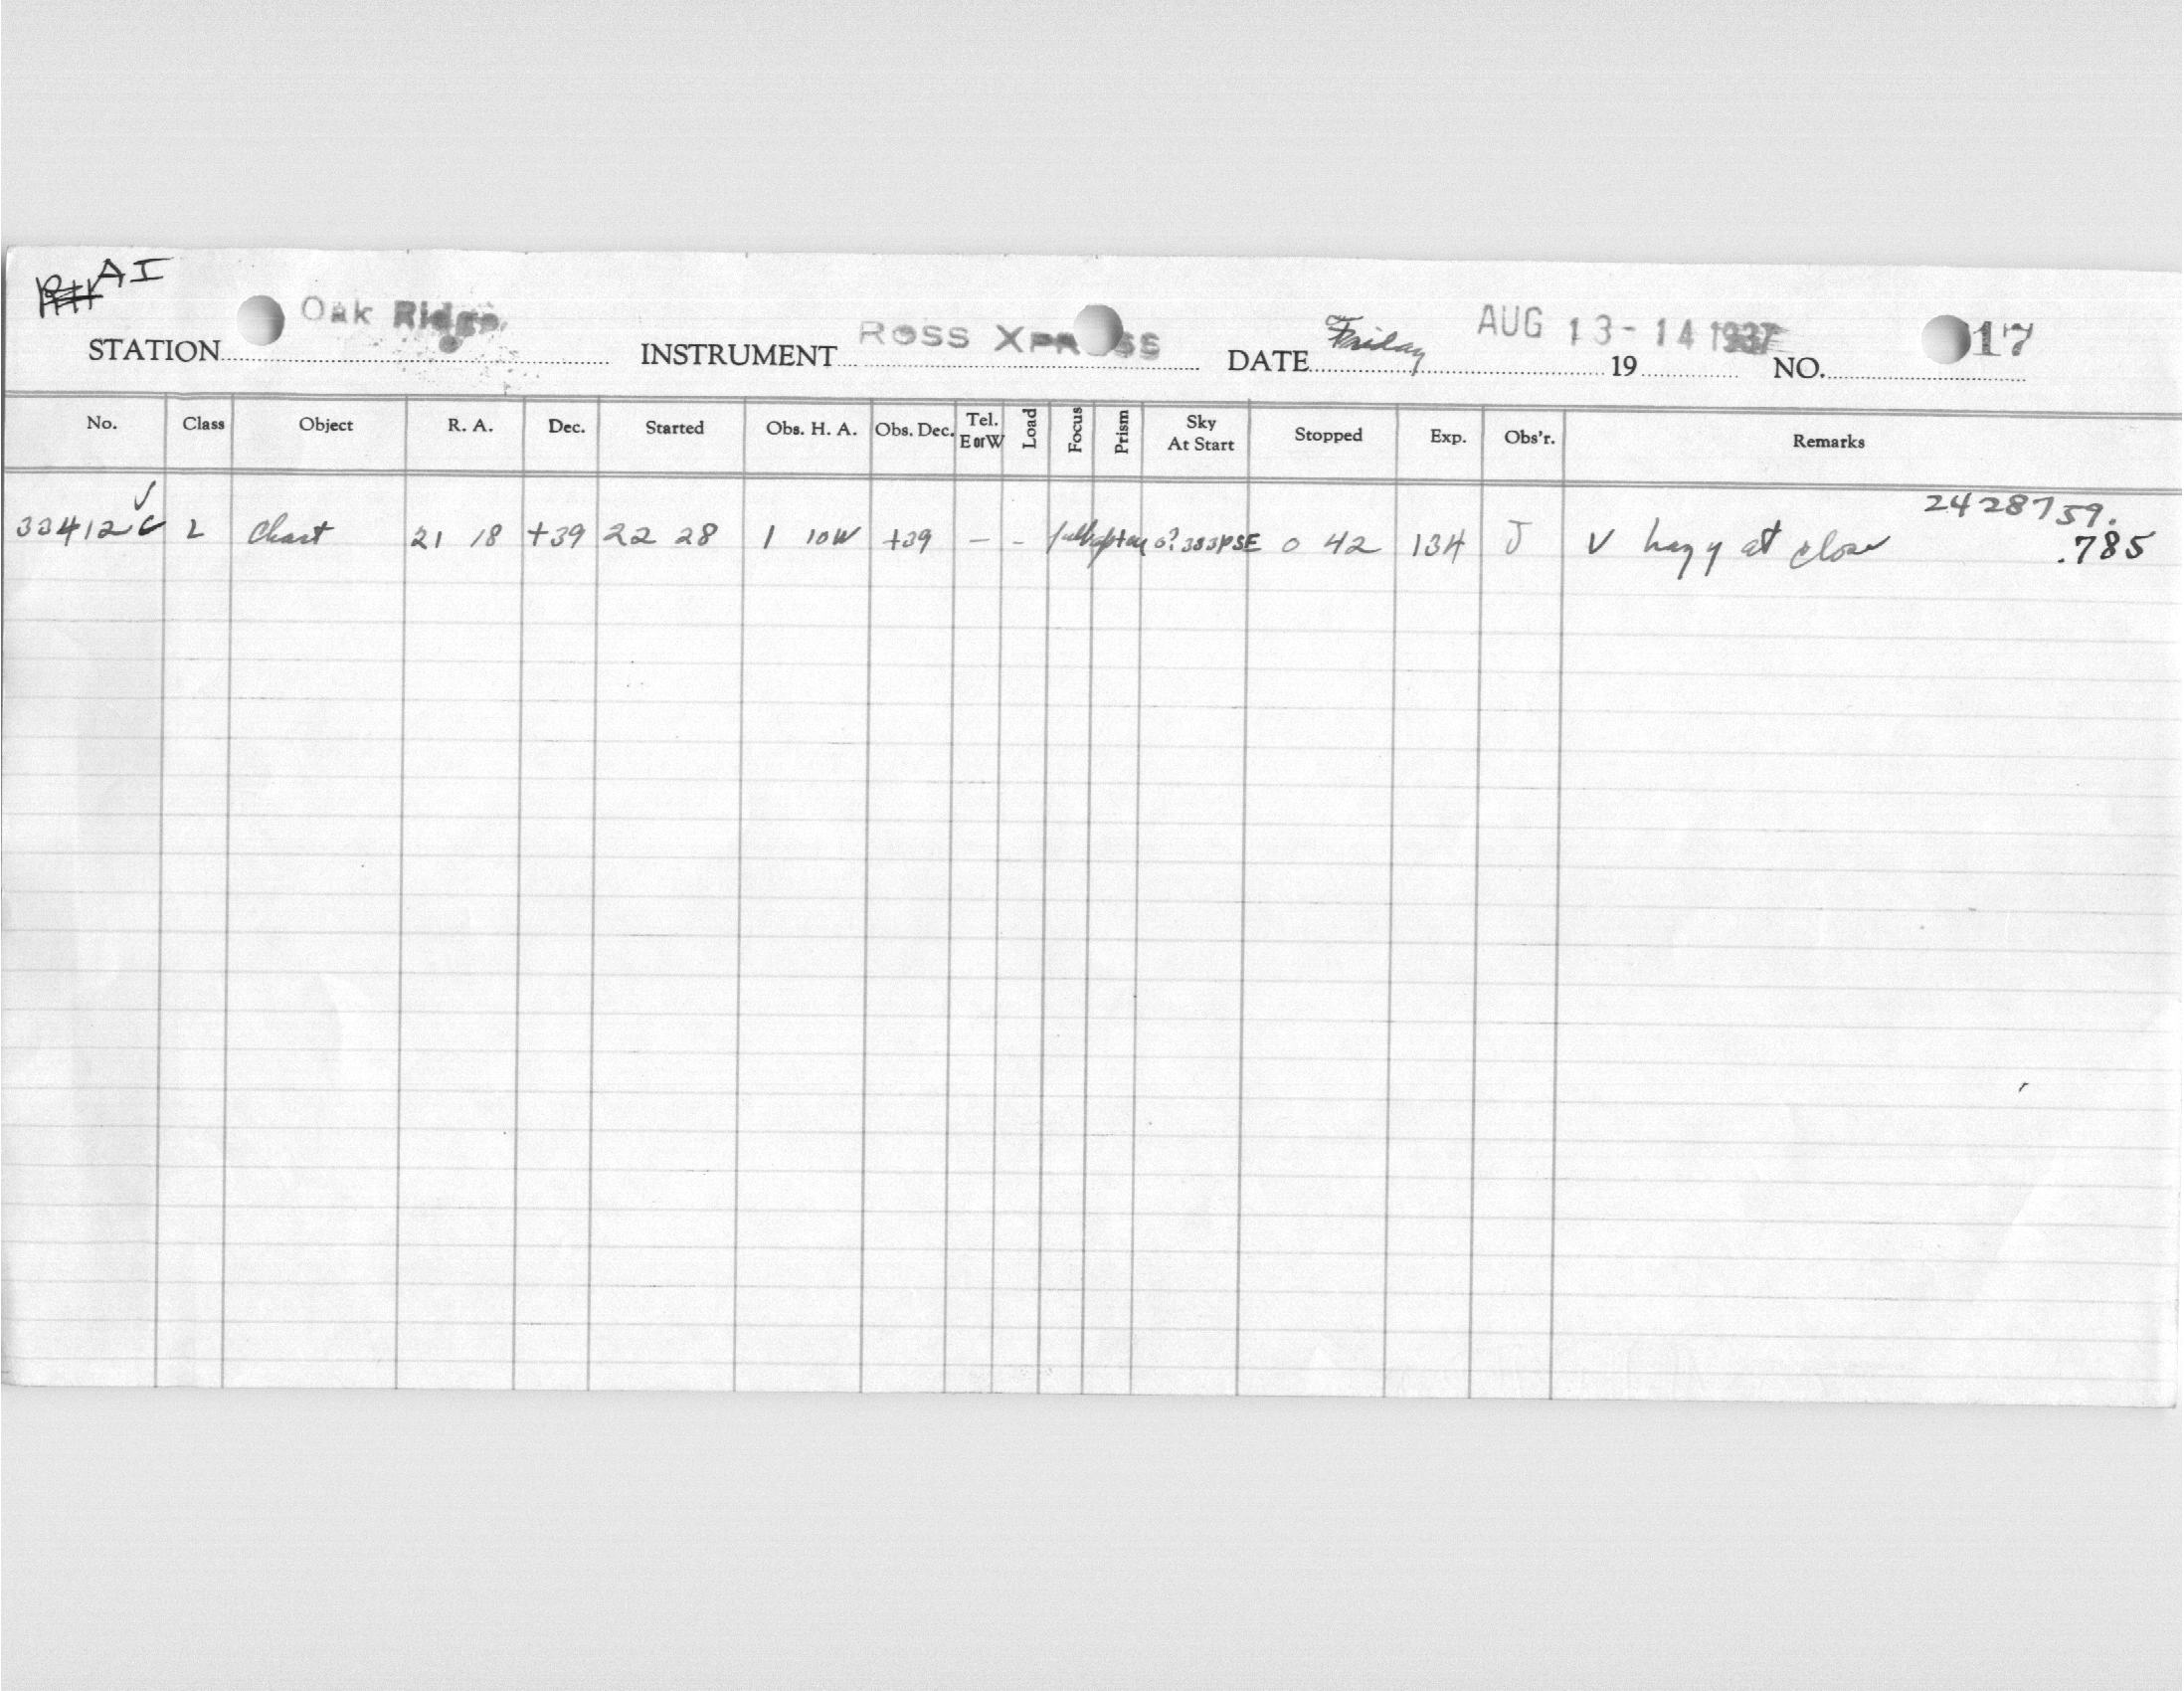 AI
STATION Oak Ridge. INSTRUMENT ROSS XPRESS DATE Friday AUG 13-14 1937 19 NO. 17
No. Class Object R. A. Dec. Started Obs. H. A. Obs. Dec. Tel. E or W Load Focus Prism Sky At Start Stopped Exp. Obs'r. Remarks
2428759.
33412 L Chart 21 18 +39 22 28 1 10W +39 – - full 0 42 134 J V hazy at close .785